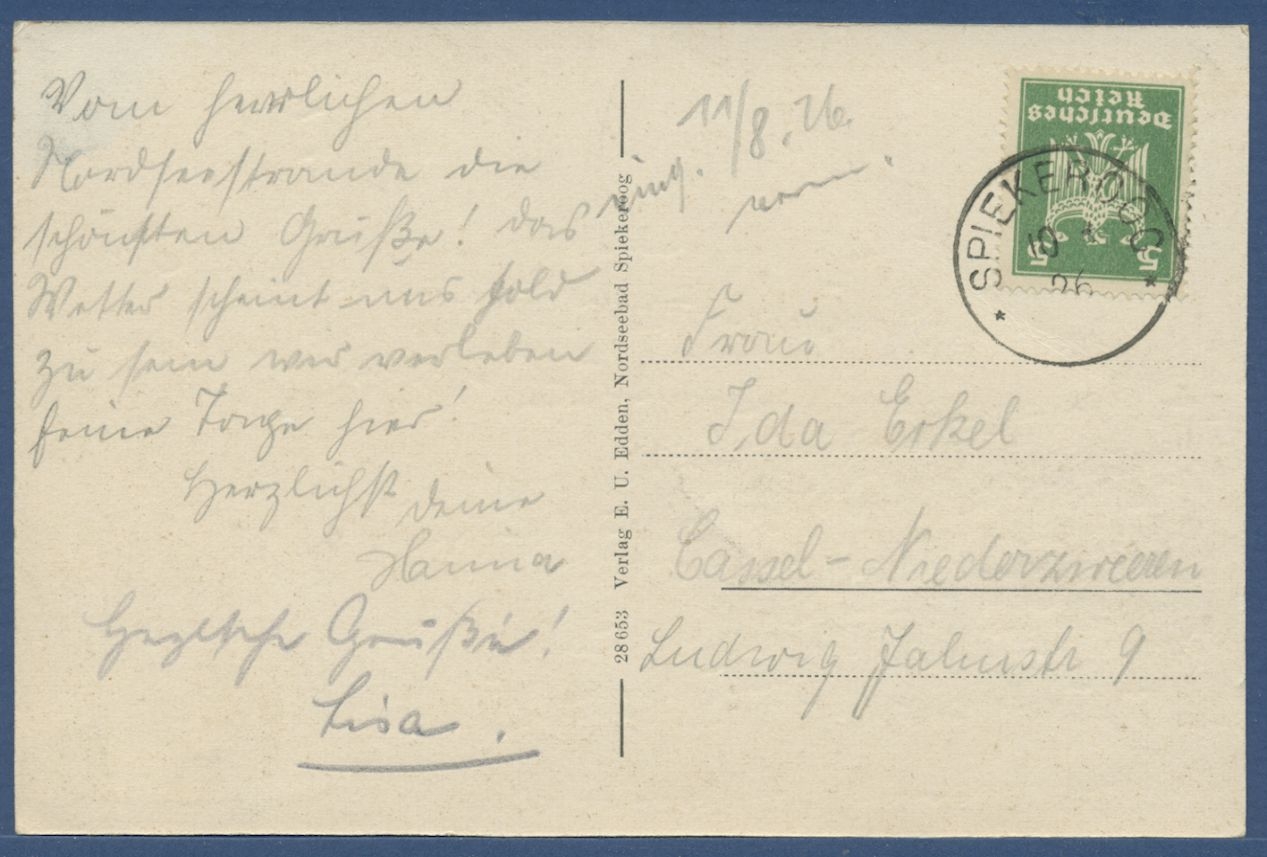 Vom herrlichen
Nordseestrande die
schönsten Grüße! Das
Wetter scheint uns hold
zu sein wir verleben
feine Tage hier!
Herzlichst deine
Hanna
Herzliche Grüße!
Lisa.
28653 Verlag E. U. Edden, Nordseebad Spiekeroog
11/8. 26.
Deutsches
Reich
5 5
SPIEKEROOG
10
26
Frau
Ida Erkel
Cassel-Niederzwehren
Ludwig Jahnstr 9